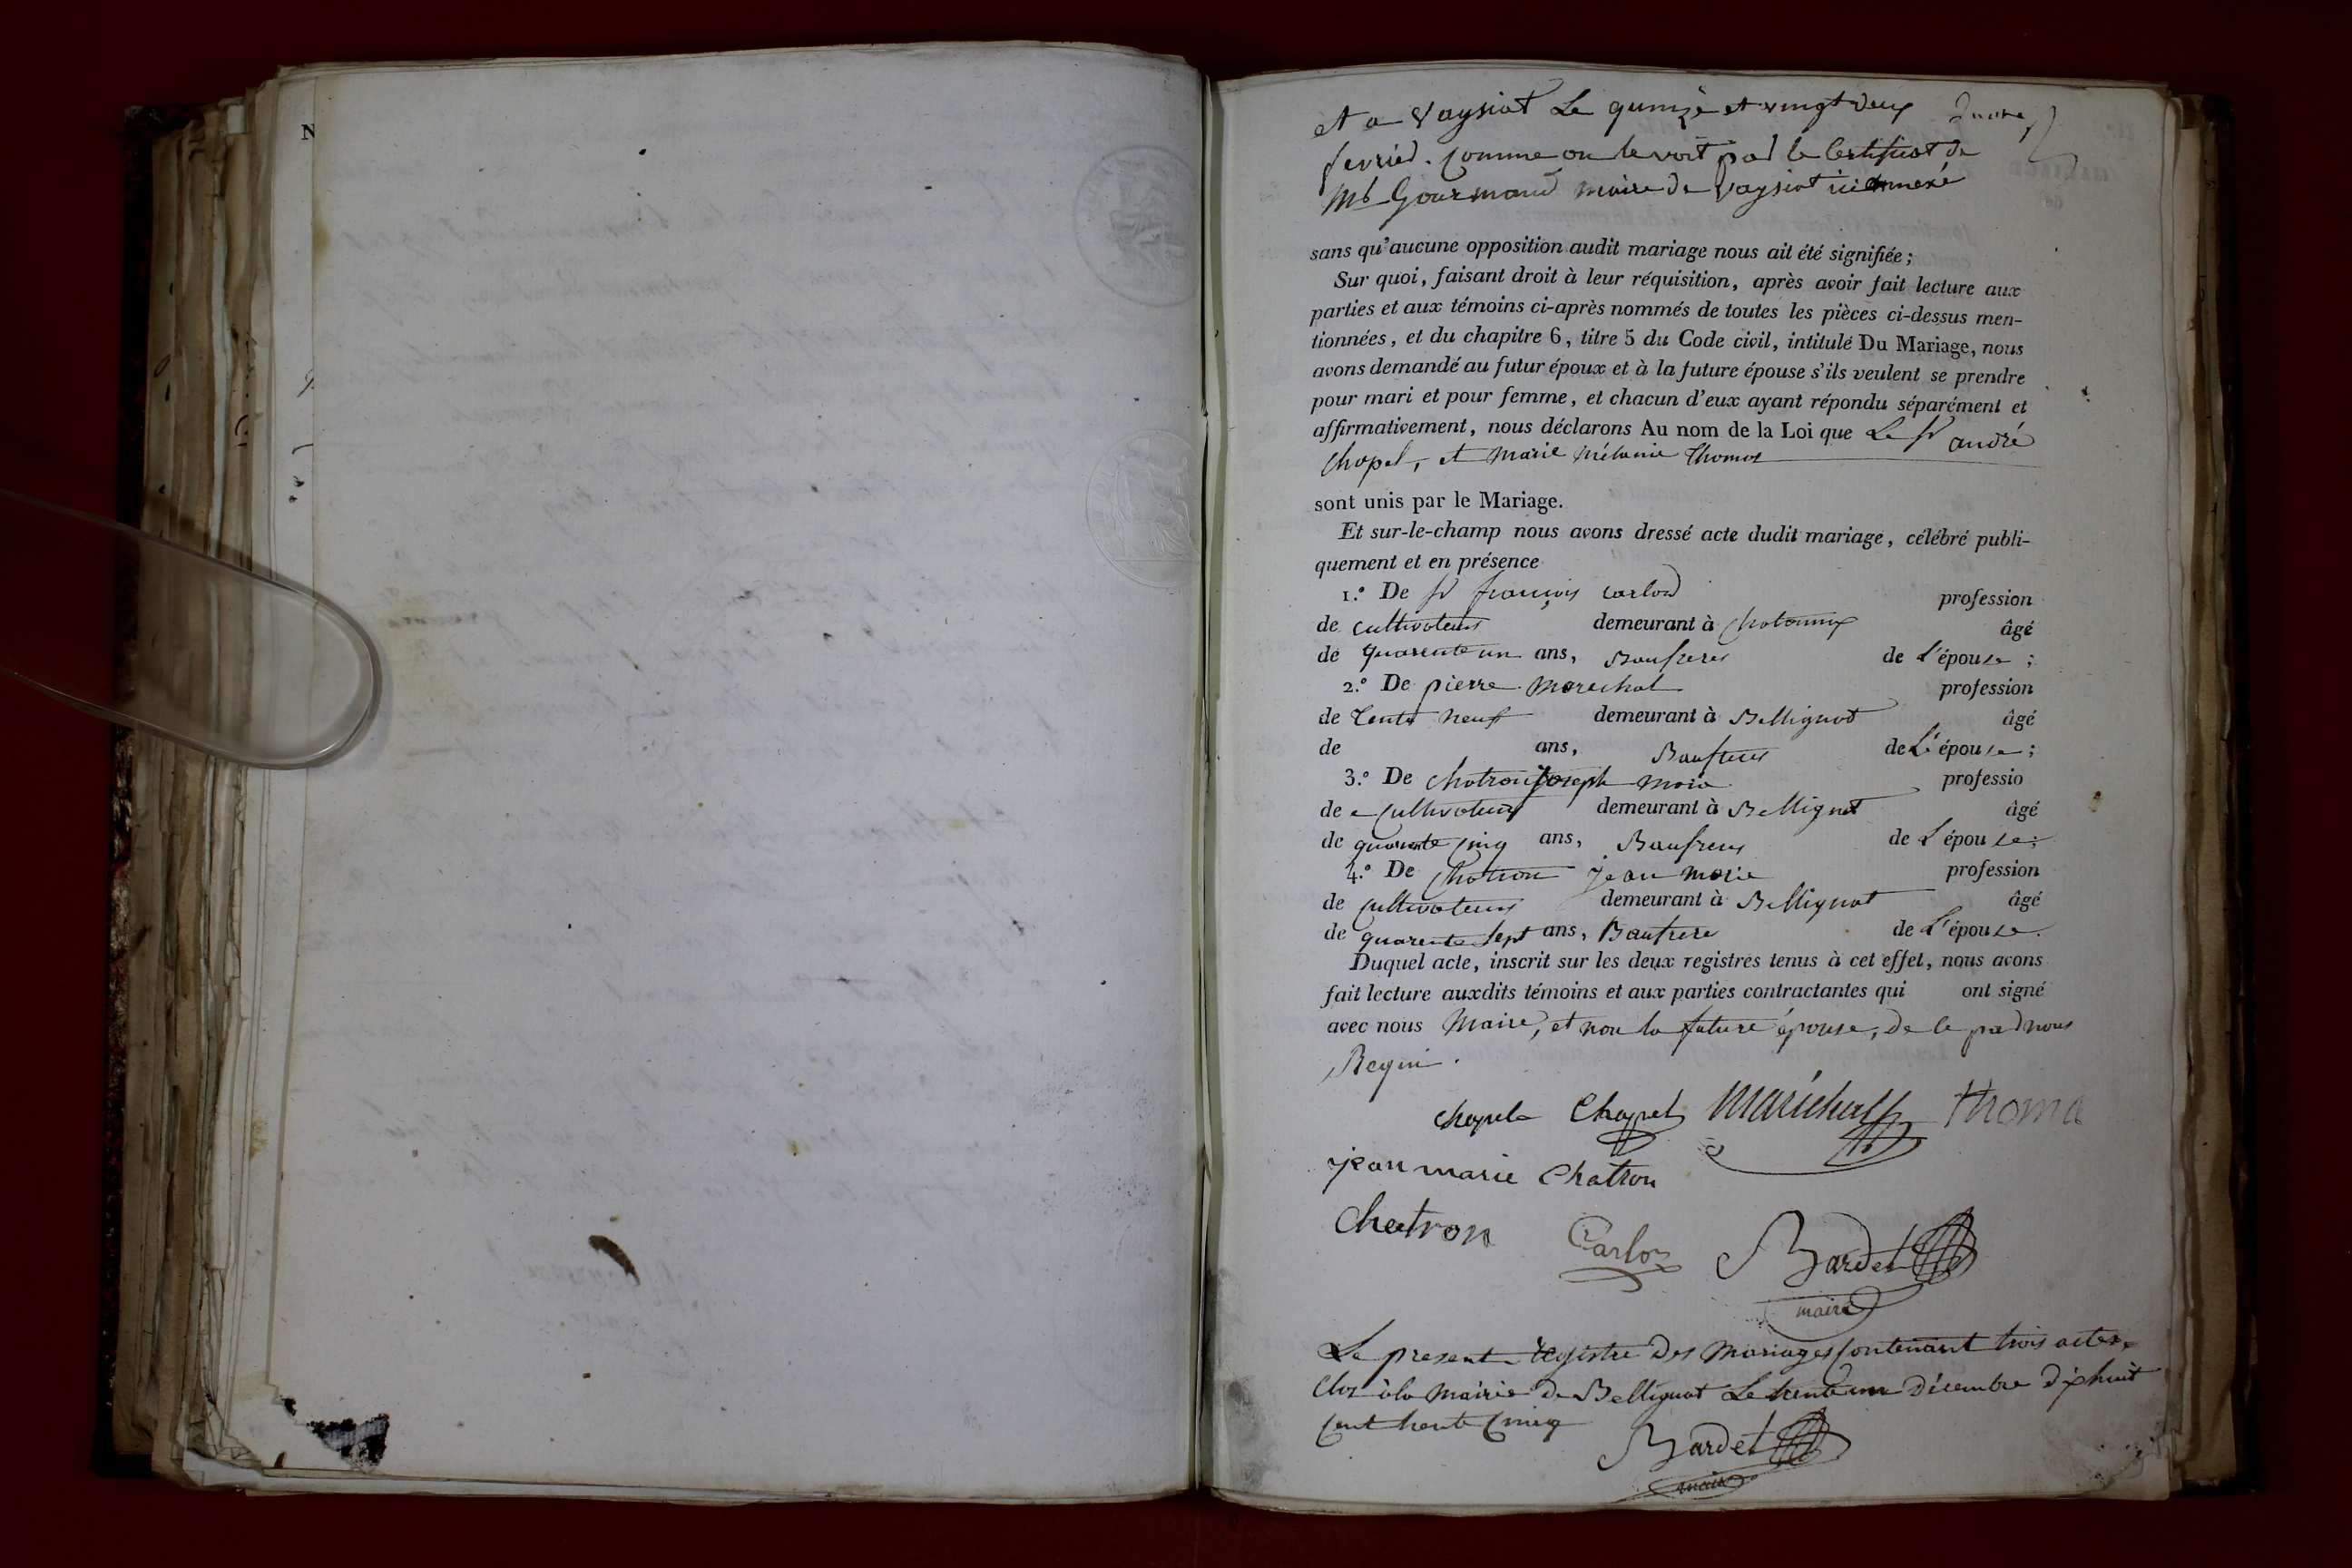 N
et a Vaysiat Le quinze et vingt deux
fevrier. Comme on le voit par le Certificat de
Mr Gourmand maire de Vaysiat ici annexé
sans qu'aucune opposition audit mariage nous ait été signifiée ;
Sur quoi, faisant droit à leur réquisition, après avoir fait lecture aux
parties et aux témoins ci-après nommés de toutes les pièces ci-dessus men-
tionnées, et du chapitre 6, titre 5 du Code civil, intitulé Du Mariage, nous
avons demandé au futur époux et à la future épouse s'ils veulent se prendre
pour mari et pour femme, et chacun d'eux ayant répondu séparément et
affirmativement, nous déclarons Au nom de la Loi que Le Sr andré
Chapel, et Marie Mélanie Thomas
sont unis par le Mariage.
Et sur-le-champ nous avons dressé acte dudit mariage, célébré publi-
quement et en présence
1.º De Sr françois Carloz profession
de cultivateur demeurant à Chatonnax âgé
de quarente un ans, Baufrere de L'épouse ;
2.º De pierre Marechal profession
de demeurant à Bellignat âgé
de ans, Baufrere de L'épouse ;
3.º De Chatron Joseph Marie professio
de Cultivateur demeurant à Bellignat âgé
de quarente Cinq ans, Baufrere de L'épouse ;
4.º De Chatron jean Marie profession
de Cultivateur demeurant à Bellignat âgé
de quarente Sept ans, Baufrere de L'épouse.
Duquel acte, inscrit sur les deux registres tenus à cet effet, nous avons
fait lecture auxdits témoins et aux parties contractantes qui ont signé
avec nous Maire, et non la future épouse, de ce par nous
Requi.
Chapel Chapel Maréchal Thoma
jean marie Chatron
Chatron Carloz Bardet
maire
Le present registre des Mariages Contenant trois actes
Clos à la Mairie de Bellignat Le trente un Décembre dix huit
Cent trente Cinq
Bardet
maire